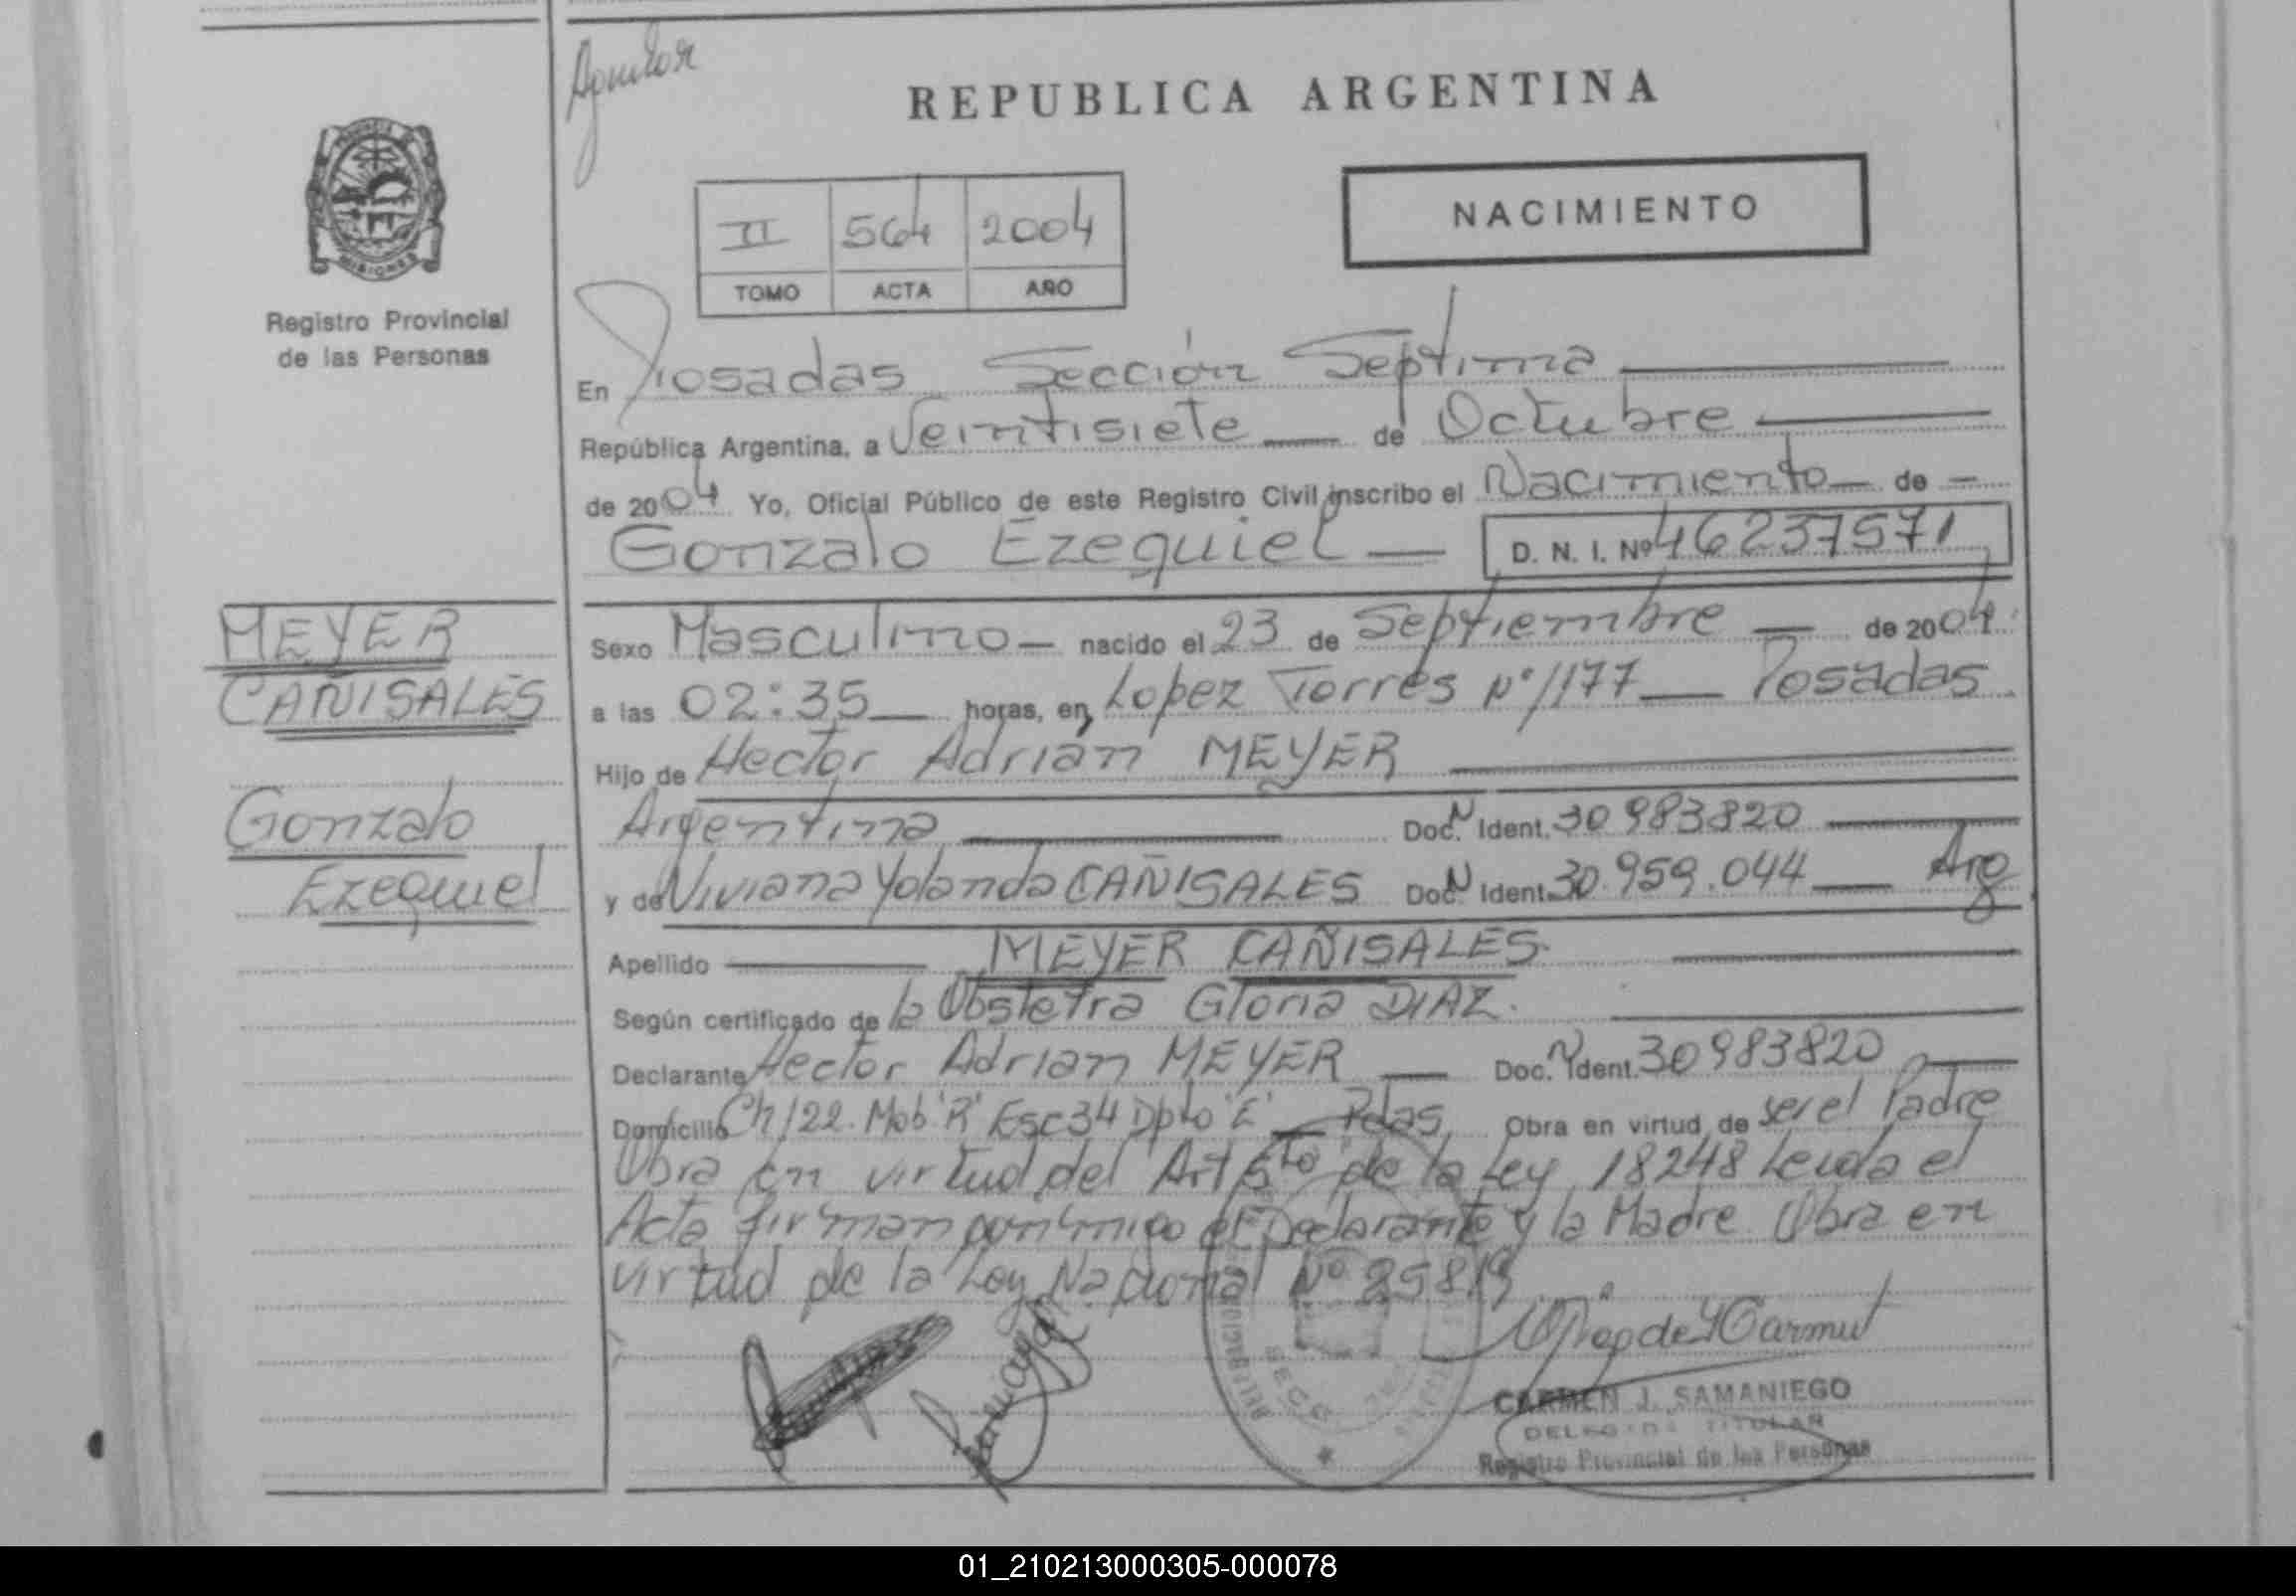 Aguilar
REPUBLICA ARGENTINA
PROVINCIA DE
MISIONES
Registro Provincial
de las Personas
II 564 2004
TOMO ACTA AÑO
NACIMIENTO
En Posadas Sección Septima
República Argentina, a Veintisiete de Octubre
de 2004 Yo, Oficial Público de este Registro Civil inscribo el Nacimiento de
Gonzalo Ezequiel D. N. I. Nº 46237571
MEYER
CAÑISALES
Gonzalo
Ezequiel
Sexo Masculino nacido el 23 de Septiembre de 2004
a las 02:35 horas, en Lopez Torres Nº 1177 Posadas
Hijo de Hector Adrian MEYER
Argentina Doc. N Ident. 30983820
y de Viviana Yolanda CAÑISALES Doc. N Ident. 30.959.044 Arg
Apellido MEYER CAÑISALES.
Según certificado de la Obstetra Gloria DIAZ.
Declarante Hector Adrian MEYER Doc. N Ident. 30983820
Domicilio Ch 122. Mob 'R' Esc 34 Dpto 'E' Pdas. Obra en virtud de ser el Padre
Obra en virtud del Art 5to de la Ley 18248 Leida el
Acta firman conmigo el Declarante y la Madre Obra en
virtud de la Ley Nacional Nº 25819
CARMEN J. SAMANIEGO
DELEGADA TITULAR
Registro Provincial de las Personas
01_210213000305-000078